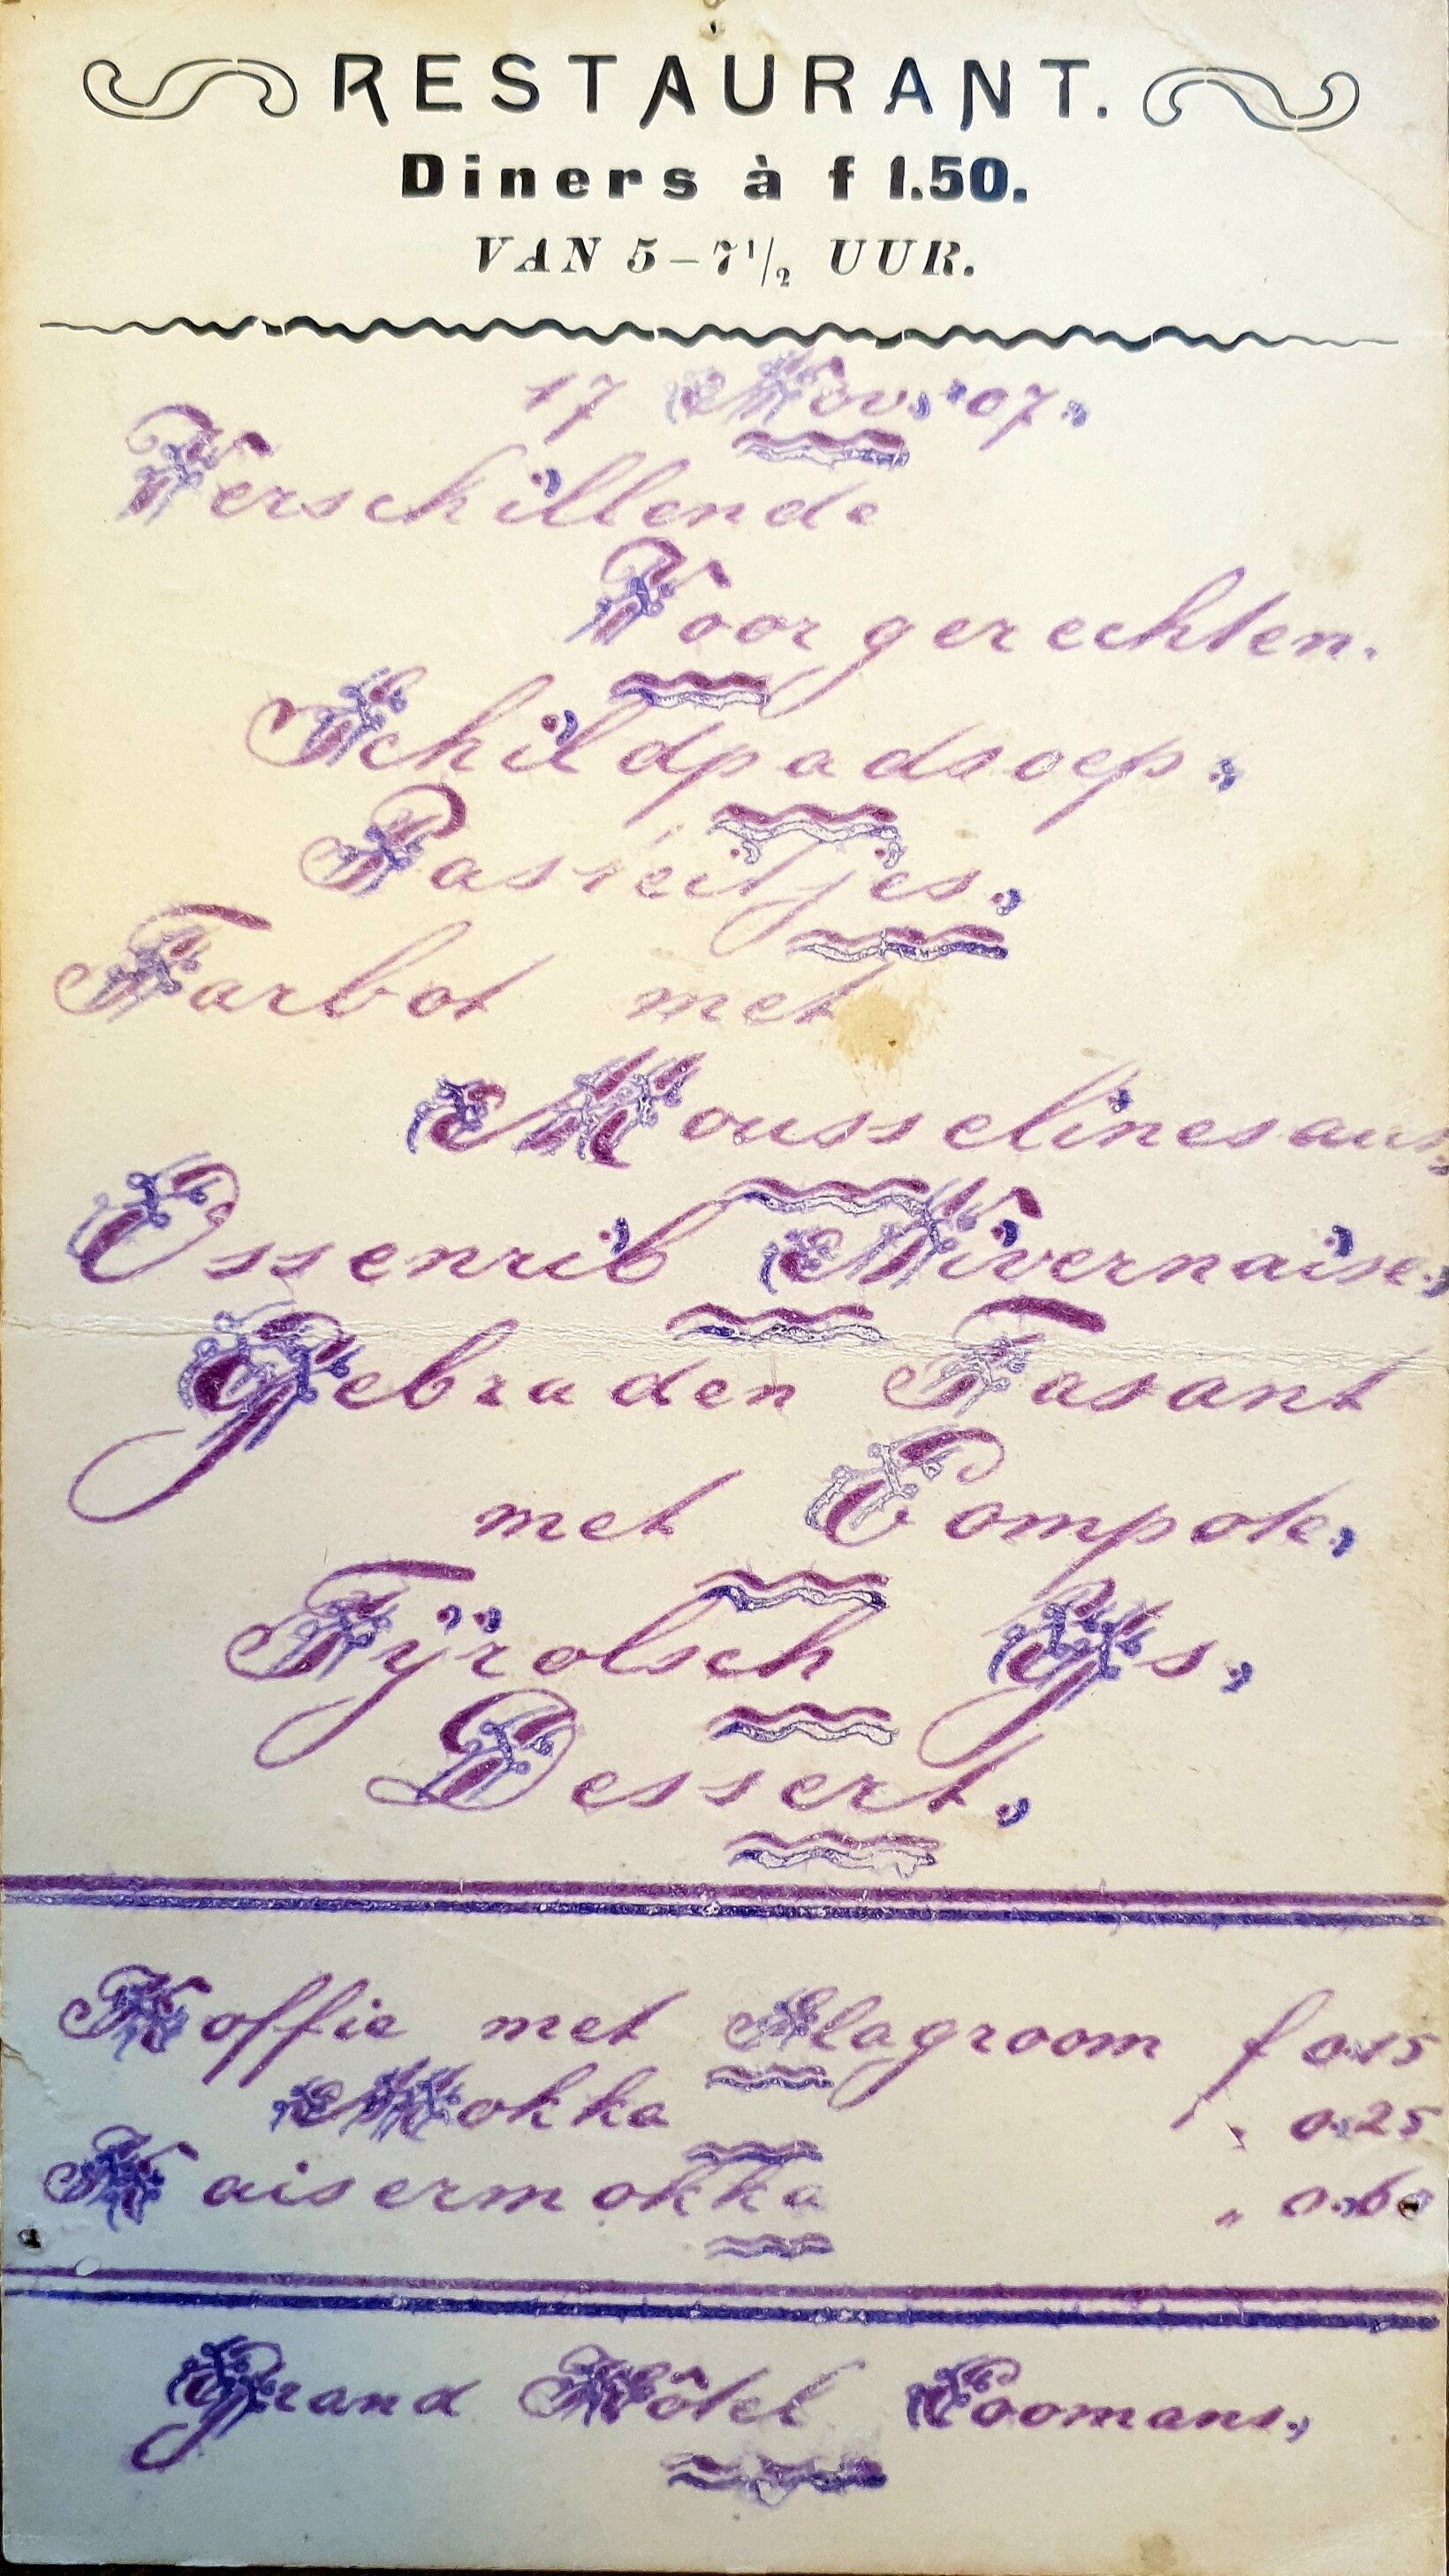 RESTAURANT.
Diners à f 1.50.
VAN 5–7 1/2 UUR.
17 Nov. '07.
Verschillende
Voorgerechten.
Schildpadsoep.
Pasteitjes.
Tarbot met
Mousselinesaus.
Ossenrib Nivernaise.
Gebraden Fasant
met Compote.
Tÿrolsch Ys.
Dessert.
Koffie met Slagroom f 0.15
Mokka " 0.25
Kaisermokka " 0.60
Grand Hôtel Coomans.